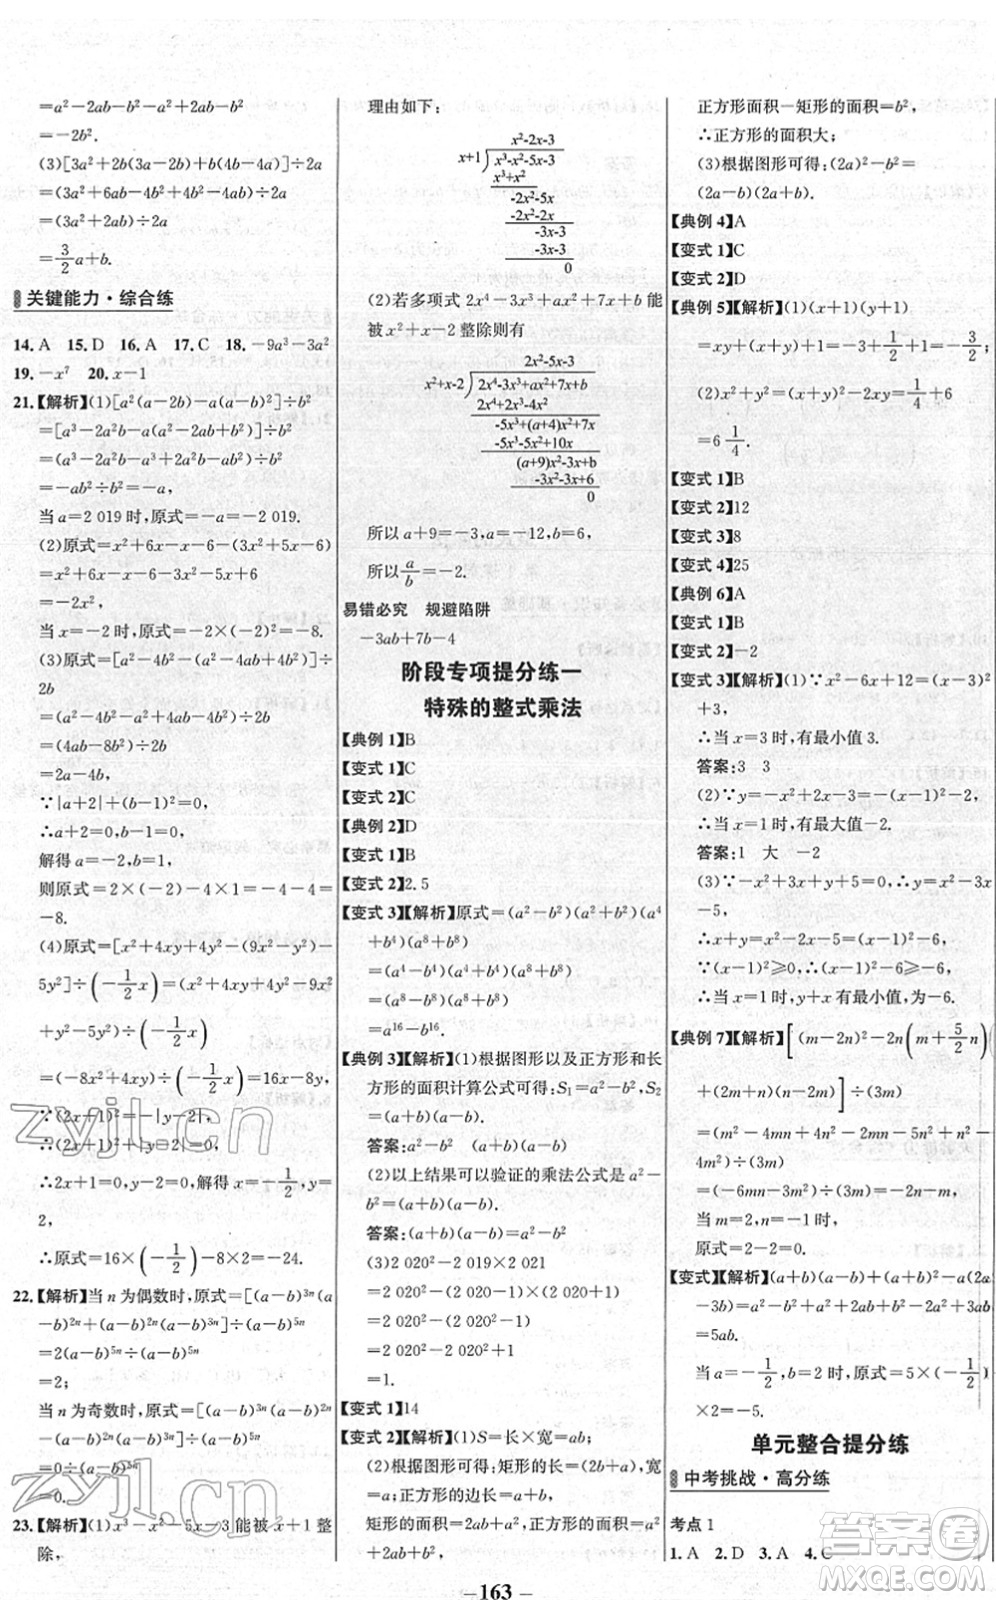 =a²-2ab-b²-a²+2ab-b²
=-2b².
(3)[3a²+2b(3a-2b)+b(4b-4a)]÷2a
=(3a²+6ab-4b²+4b²-4ab)÷2a
=(3a²+2ab)÷2a
=3/2a+b.
关键能力·综合练
14. A 15. D 16. A 17. C 18. -9a³-3a²
19. -x⁷ 20. x-1
21.【解析】(1)[a²(a-2b)-a(a-b)²]÷b²
=[a³-2a²b-a(a²-2ab+b²)]÷b²
=(a³-2a²b-a³+2a²b-ab²)÷b²
=-ab²÷b²=-a,
当a=2 019时,原式=-a=-2 019.
(2)原式=x²+6x-x-6-(3x²+5x-6)
=x²+6x-x-6-3x²-5x+6
=-2x²,
当x=-2时,原式=-2×(-2)²=-8.
(3)原式=[a²-4b²-(a²-4ab+4b²)]÷
2b
=(a²-4b²-a²+4ab-4b²)÷2b
=(4ab-8b²)÷2b
=2a-4b,
∵|a+2|+(b-1)²=0,
∴a+2=0,b-1=0,
解得a=-2,b=1,
则原式=2×(-2)-4×1=-4-4=
-8.
(4)原式=[x²+4xy+4y²-(9x²-y²)-
5y²]÷(-1/2x)=(x²+4xy+4y²-9x²
+y²-5y²)÷(-1/2x)
=(-8x²+4xy)÷(-1/2x)=16x-8y,
∵(2x+1)²=-|y-2|,
∴(2x+1)²+|y-2|=0,
∴2x+1=0,y-2=0,解得x=-1/2,y=
2,
∴原式=16×(-1/2)-8×2=-24.
22.【解析】当n为偶数时,原式=[(a-b)³ⁿ(a
-b)²ⁿ+(a-b)²ⁿ(a-b)³ⁿ]÷(a-b)⁵ⁿ
=2(a-b)⁵ⁿ÷(a-b)⁵ⁿ
=2;
当n为奇数时,原式=[(a-b)³ⁿ(a-b)²ⁿ
-(a-b)²ⁿ(a-b)³ⁿ]÷(a-b)⁵ⁿ
=0÷(a-b)⁵ⁿ
=0.
23.【解析】(1)x³-x²-5x-3能被x+1整
除,
理由如下:
x²-2x-3
x+1
x³-x²-5x-3
x³+x²
-2x²-5x
-2x²-2x
-3x-3
-3x-3
0
(2)若多项式2x⁴-3x³+ax²+7x+b能
被x²+x-2整除则有
2x²-5x-3
x²+x-2
2x⁴-3x³+ax²+7x+b
2x⁴+2x³-4x²
-5x³+(a+4)x²+7x
-5x³-5x²+10x
(a+9)x²-3x+b
-3x²-3x+6
0
所以a+9=-3,a=-12,b=6,
所以a/b=-2.
易错必究 规避陷阱
-3ab+7b-4
阶段专项提分练一
特殊的整式乘法
【典例1】B
【变式1】C
【变式2】C
【典例2】D
【变式1】B
【变式2】2.5
【变式3】【解析】原式=(a²-b²)(a²+b²)(a⁴
+b⁴)(a⁸+b⁸)
=(a⁴-b⁴)(a⁴+b⁴)(a⁸+b⁸)
=(a⁸-b⁸)(a⁸+b⁸)
=a¹⁶-b¹⁶.
【典例3】【解析】(1)根据图形以及正方形和长
方形的面积计算公式可得:S₁=a²-b²,S₂
=(a+b)(a-b).
答案:a²-b² (a+b)(a-b)
(2)以上结果可以验证的乘法公式是a²-
b²=(a+b)(a-b).
答案:(a+b)(a-b)=a²-b²
(3)2 020²-2 019×2 021
=2 020²-(2 020-1)×(2 020+1)
=2 020²-(2 020²-1²)
=2 020²-2 020²+1²
=1.
【变式1】14
【变式2】【解析】(1)S=长×宽=ab;
(2)根据题意得:矩形的长=(2a+b),宽
=a;正方形的边长=(a+b),
矩形的面积=2a²+ab,正方形的面积=a²
+2ab+b²,
正方形面积-矩形的面积=b²,
∴正方形的面积大;
(3)根据图形可得:(2a)²-b²=
(2a-b)(2a+b).
【典例4】A
【变式1】C
【变式2】D
【典例5】【解析】(1)(x+1)(y+1)
=xy+(x+y)+1=-3+1/2+1=-3/2;
(2)x²+y²=(x+y)²-2xy=1/4+6
=6 1/4.
【变式1】B
【变式2】12
【变式3】8
【变式4】25
【典例6】A
【变式1】B
【变式2】-2
【变式3】【解析】(1)∵x²-6x+12=(x-3)²
+3,
∴当x=3时,有最小值3.
答案:3 3
(2)∵y=-x²+2x-3=-(x-1)²-2,
∴当x=1时,有最大值-2.
答案:1 大 -2
(3)∵-x²+3x+y+5=0,∴y=x²-3x
-5,
∴x+y=x²-2x-5=(x-1)²-6,
∵(x-1)²≥0,∴(x-1)²-6≥-6,
∴当x=1时,y+x有最小值,为-6.
【典例7】【解析】[(m-2n)²-2n(m+5/2n)
+(2m+n)(2m-n)]÷(3m)
=(m²-4mn+4n²-2mn-5n²-n²+
4m²)÷(3m)
=(-6mn-3m²)÷(3m)=-2n-m,
当m=2,n=-1时,
原式=2-2=0.
【变式】【解析】(a+b)(a-b)+(a+b)²-a(2a
-3b)=a²-b²+a²+2ab+b²-2a²+3ab
=5ab.
当a=-1/2,b=2时,原式=5×(-1/2)
×2=-5.
单元整合提分练
中考挑战·高分练
考点1
1. A 2. D 3. A 4. C
- 163 -
zyjl.cn
zyjl.cn
答案卷
MXQE.COM